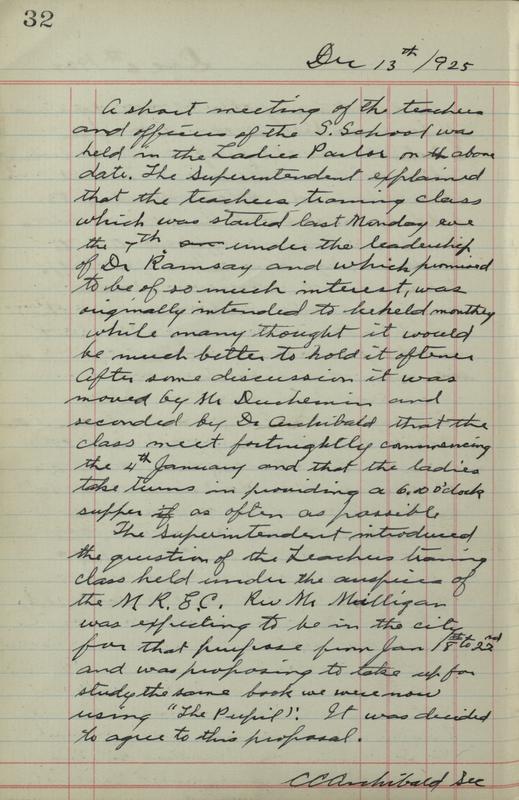 32
Dec 13th /1925
A short meeting of the teachers
and officers of the S. School was
held in the Ladies Parlor on the above
date. The Superintendent explained
that the teachers training class
which was started last Monday eve
the 7th under the leadership
of Dr Ramsay and which promised
to be of so much interest, was
originally intended to be held monthly
while many thought it would
be much better to hold it oftener
After some discussion it was
moved by Mr Duchemin and
seconded by Dr Archibald that the
class meet fortnightly commencing
the 4th January and that the ladies
take turns in providing a 6.00 o'clock
supper as often as possible
The Superintendent introduced
the question of the Teachers traning
class held under the auspices of
the M.R.E.C. Rev Mr Milligan
was expecting to be in the city
for that purpose from Jan 18th to 22nd
and was proposing to take up for
study the same book we were now
using "The Pupil". It was decided
to agree to this proposal.
CC Archibald Sec